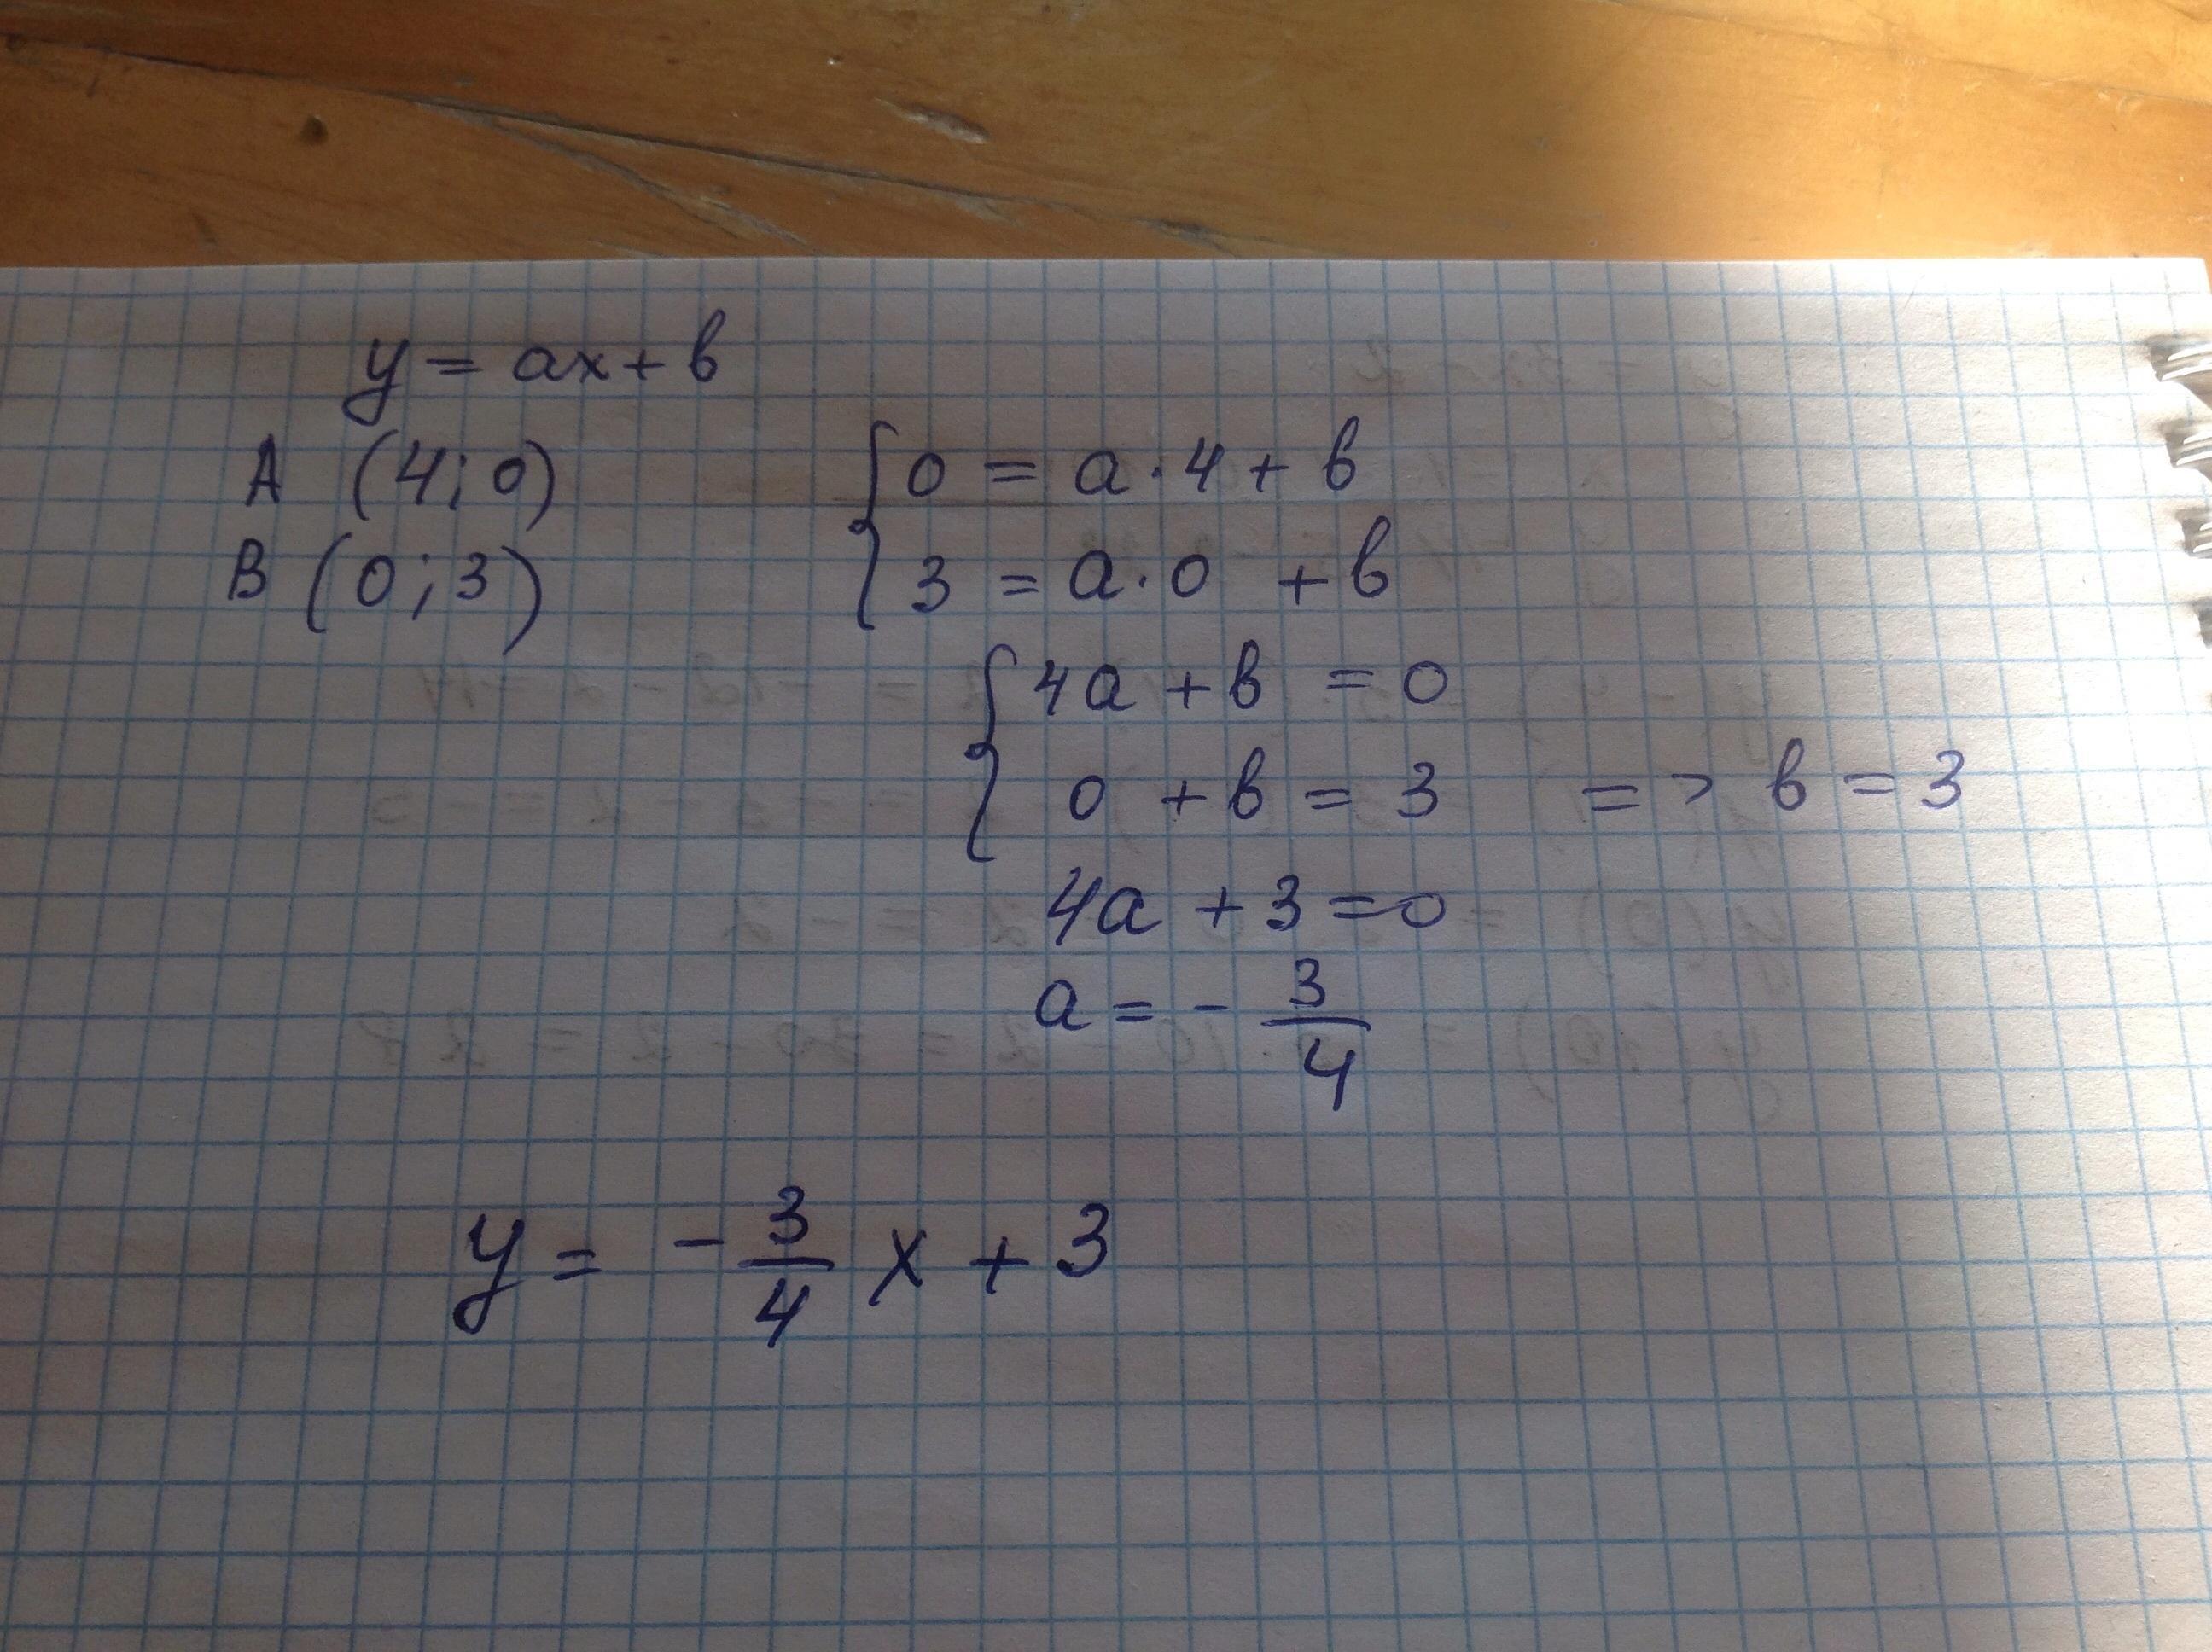 y = ax + b
A (4; 0)
B (0; 3)
{ 0 = a · 4 + b
3 = a · 0 + b
{ 4a + b = 0
0 + b = 3 => b = 3
4a + 3 = 0
a = - 3/4
y = - 3/4 x + 3